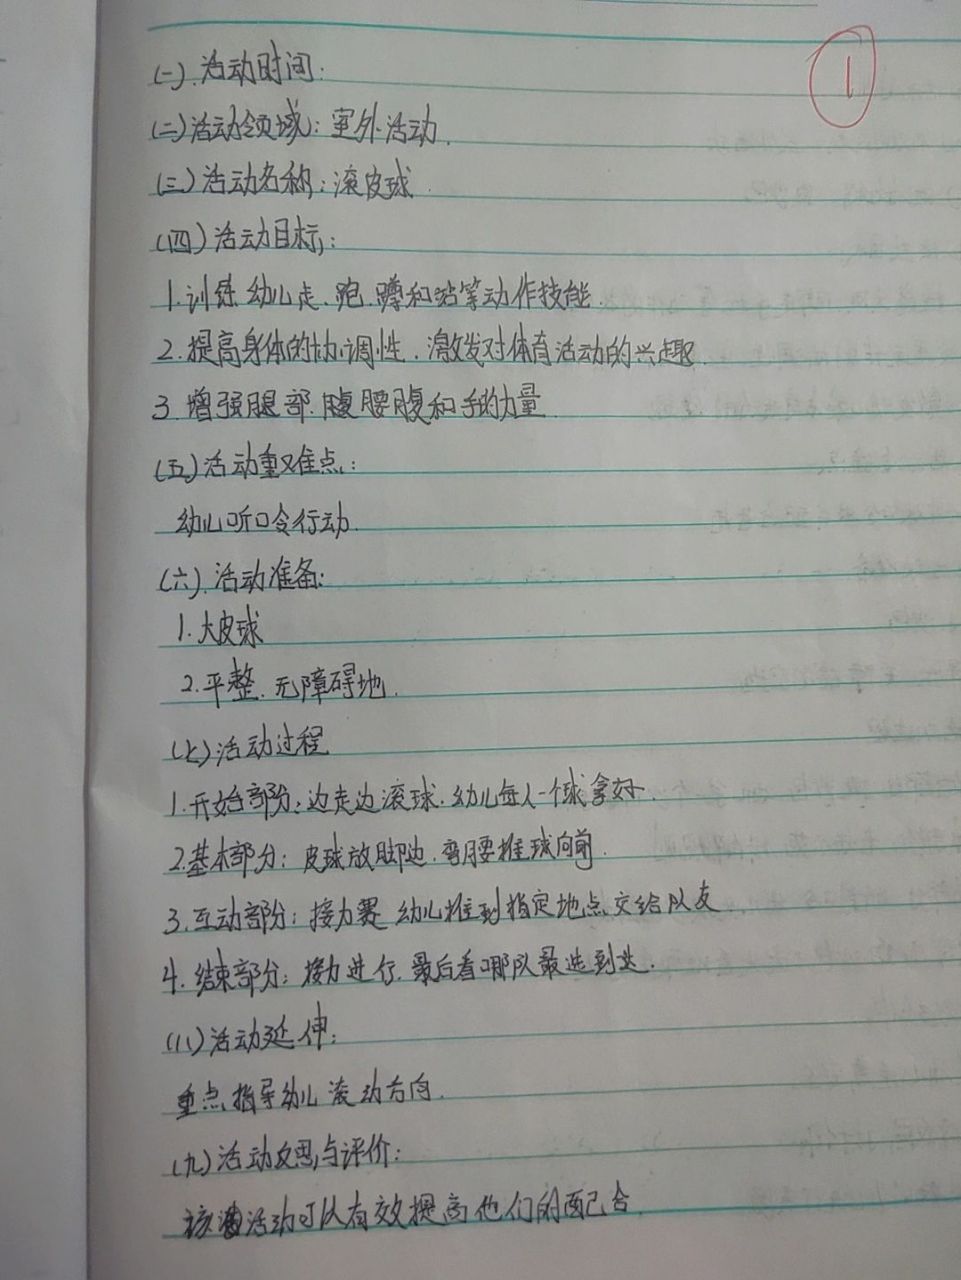 1
(一).活动时间:
(二)活动领域:室外活动.
(三)活动名称:滚皮球.
(四)活动目标:
1.训练幼儿走.跑.蹲和站等动作技能.
2.提高身体的协调性.激发对体育活动的兴趣.
3.增强腿部.腹腰腹和手的力量.
(五)活动重难点:
幼儿听口令行动.
(六).活动准备:
1.大皮球
2.平整.无障碍地.
(七)活动过程
1.开始部分:边走边滚球.幼儿每人一个球拿好.
2.基本部分:皮球放脚边.弯腰推球向前.
3.互动部分:接力赛 幼儿推到指定地点.交给队友
4.结束部分:接力进行.最后看哪队最先到达.
(八)活动延伸:
重点指导幼儿滚动方向.
(九)活动反思与评价:
该活动可以有效提高他们的配合.